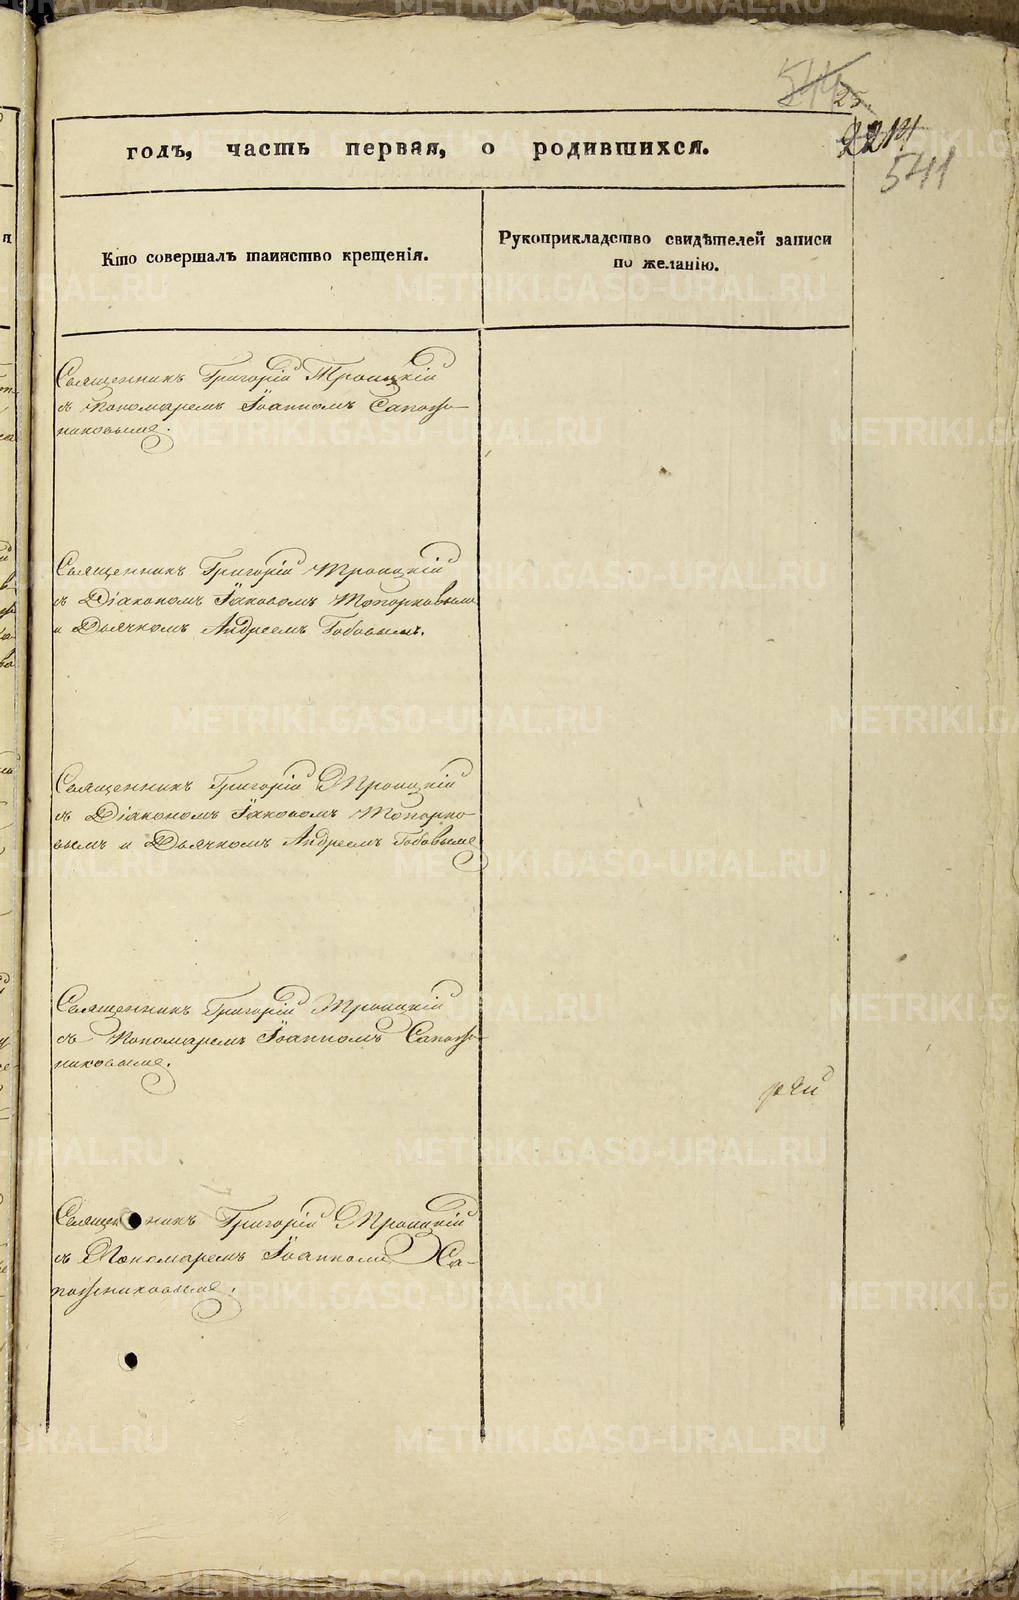 544
25
2214
541
годъ, часть первая, о родившихся.
Кто совершалъ таинство крещенія.
Рукоприкладство свидѣтелей записи
по желанію.
Священникъ Григорій Троицкій
съ Пономаремъ Іоанномъ Сапож-
никовымъ.
Священникъ Григорій Троицкій
съ Діакономъ Іаковомъ Топорковымъ
и Дьячкомъ Андреемъ Бобовымъ.
Священникъ Григорій Троицкій
съ Діакономъ Іаковомъ Топорко-
вымъ и Дьячкомъ Андреемъ Бобовымъ
Священникъ Григорій Троицкій
съ Пономаремъ Іоанномъ Сапож-
никовымъ.
Священникъ Григорій Троицкій
съ Пономаремъ Іоанномъ Са-
пожниковымъ.
METRIKI.GASO-URAL.RU